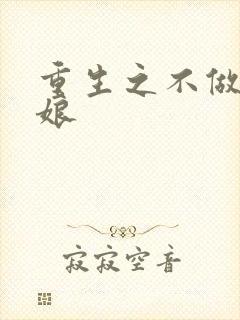 重生之不做
娘
寂寂空音